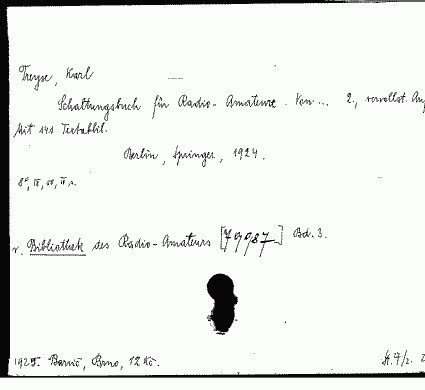 Treyse, Karl
Schaltungsbuch für Radio-Amateure. Von ... 2., vervollst.
Mit 141 Textabbil.
Berlin, Springer, 1924.
8°, IV,
v. Bibliothek des Radio-Amateurs [79987] Bd. 3.
1925. Barvič, Brno, 12 Kč.